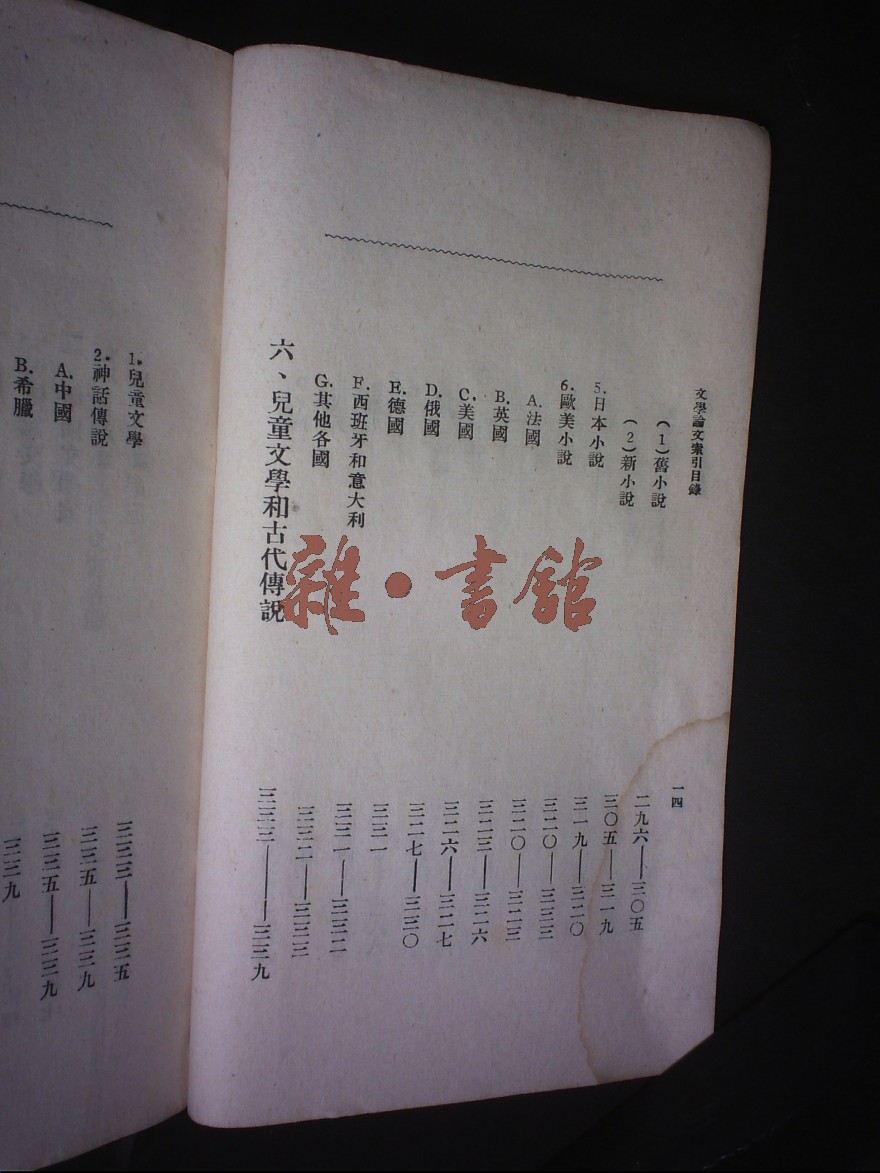 文學論文索引目錄 一四
(1)舊小說 二九六——三〇五
(2)新小說 三〇五——三一九
5.日本小說 三一九——三二〇
6.歐美小說 三二〇——三三三
A.法國 三二〇——三二三
B.英國 三二三——三二六
C.美國 三二六——三二七
D.俄國 三二七——三三〇
E.德國 三三一
F.西班牙和意大利 三三一——三三二
G.其他各國 三三二——三三三
六、兒童文學和古代傳說 三三三——三三九
1.兒童文學 三三三——三三五
2.神話傳說 三三五——三三九
A.中國 三三五——三三九
B.希臘 三三九
雜·書館